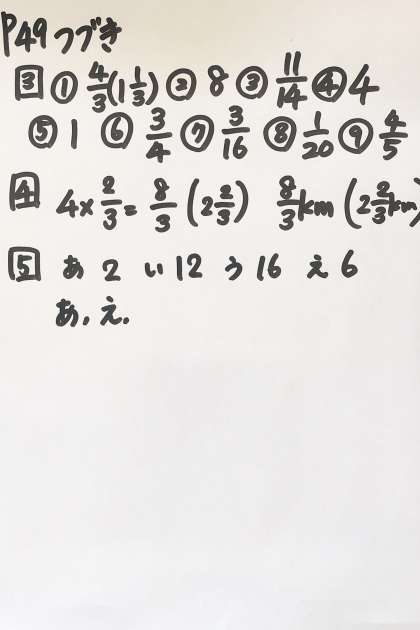 P49 つづき
3 ① 4/3 (1 1/3) ② 8 ③ 11/14 ④ 4
⑤ 1 ⑥ 3/4 ⑦ 3/16 ⑧ 1/20 ⑨ 4/5
4 4×2/3= 8/3 (2 2/3) 8/3km (2 2/3km)
5 あ 2 い 12 う 16 え 6
あ. え.